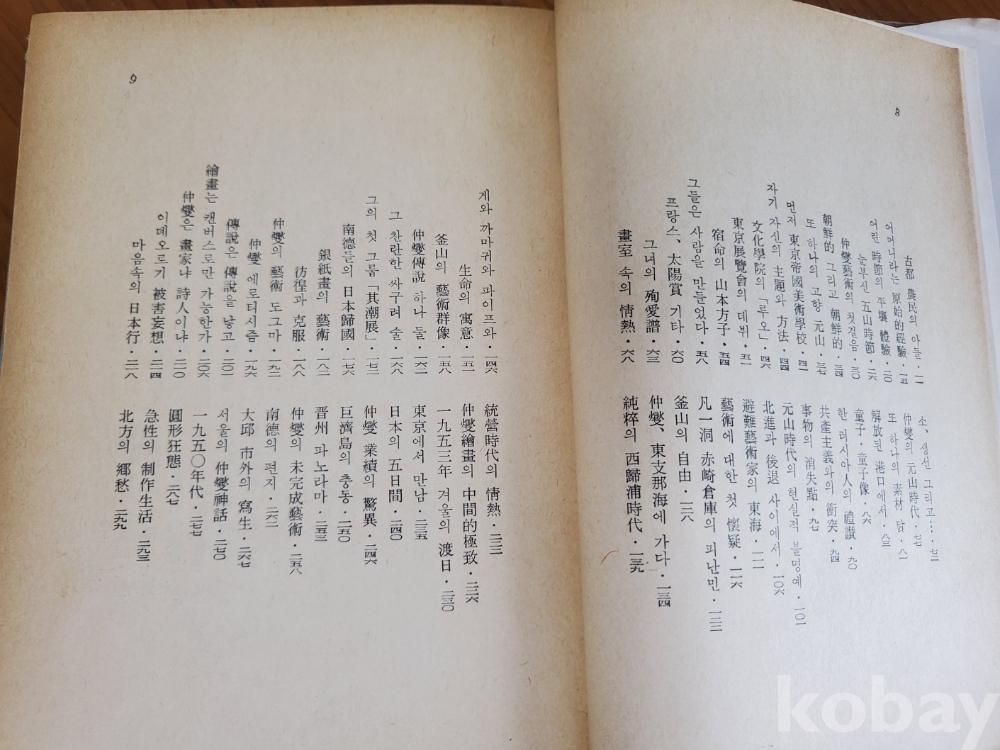 8
古都 農民의 아들・一一
어머니라는 原始的 經驗・一五
어린 時節의 平壤 體驗・二〇
눈부신 五山時節・二六
仲燮藝術의 첫걸음・三〇
朝鮮的 그리고 朝鮮的・三四
또 하나의 고향 元山・三七
먼저 東京帝國美術學校・四二
자기 자신의 主題와 方法・四四
文化學院의 「루오」・四六
東京展覽會의 데뷔・五一
宿命의 山本方子・五四
그들은 사람을 만들었다・五八
프랑스、太陽賞 기타・六〇
그녀의 殉愛譜・六三
畫室 속의 情熱・六八
소、생선 그리고…・七三
仲燮의 元山時代
또 하나의 素材 닭・八一
解放된 港口에서・八三
童子・童子像・八六
한 러시아人의 禮讚・九〇
共産主義와의 衝突・九四
事物의 消失點・九七
元山時代의 현실적 불명예・一〇一
北進과 後退 사이에서・一〇六
避難藝術家의 東海・一一一
藝術에 대한 첫 懷疑・一一六
凡一洞 赤崎倉庫의 피난민・一二二
釜山의 自由・一二八
仲燮、東支那海에 가다・一三四
純粹의 西歸浦時代・一三九
9
게와 까마귀와 파이프와・一四六
生命의 寓意・一五一
釜山의 藝術群像・一五八
仲燮傳說 하나 둘・一六二
그 찬란한 싸구려 술・一六八
그의 첫 그룹「其潮展」・一七二
南德들의 日本歸國・一七六
銀紙畫의 藝術・一八三
彷徨과 克服・一八八
仲燮의 藝術 도그마・一九二
仲燮 에로티시즘・一九六
傳說은 傳說을 낳고・二〇一
繪畫는 캔버스로만 가능한가・二〇六
仲燮은 畫家냐 詩人이냐・二一〇
이데오로기 被害妄想・二一四
마음속의 日本行・二一八
統營時代의 情熱・二二二
仲燮繪畫의 中間的極致・二二六
一九五三年 겨울의 渡日・二三〇
東京에서 만남・二三五
日本의 五日間・二四〇
仲燮 業績의 驚異・二四六
巨濟島의 충동・二五〇
晋州 파노라마・二五三
仲燮의 未完成藝術・二五八
南德의 편지・二六二
大邱 市外의 寫生・二六七
서울의 仲燮神話・二七〇
一九五〇年代・二七七
圓形狂態・二八七
急性의 制作生活・二九三
北方의 鄕愁・二九九
kobay